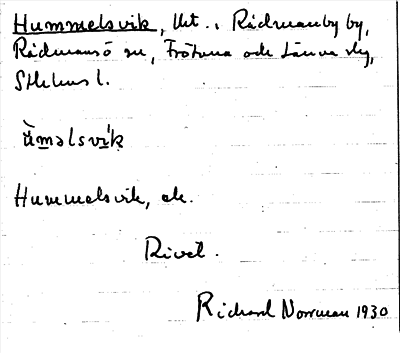 Hummelsvik, lht. i Rådmanby by,
Rådmansö sn, Frötuna och Länna slg,
Sthlms l.
Hummelsvik, ek.
Rivet.
Richard Norrman 1930